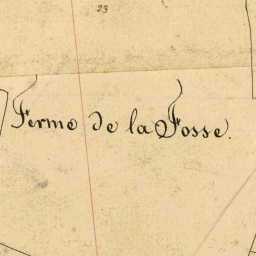 23
Ferme de la Fosse.